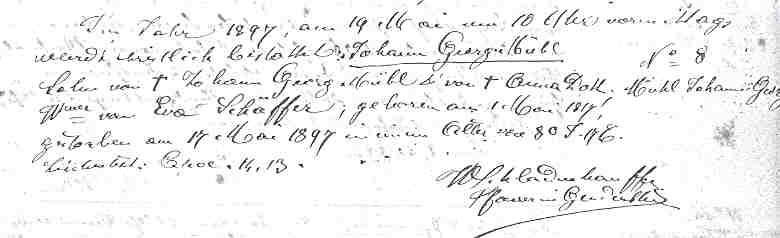 Im Jahr 1897, am 19 Mai um 10 Uhr vormittags
wurde christlich bestattet: Johann Georg Mühl
No 8
Sohn von † Johann Georg Mühl & von † Anna Doth.
Muhl Johann-Georg
Wwer von Eva Schäffer, geboren am 1 Mai 1817,
gestorben am 17 Mai 1897 in einem Alter von 80 J. 17 T.
Leichentext: 14, 13.
Pfarrer in